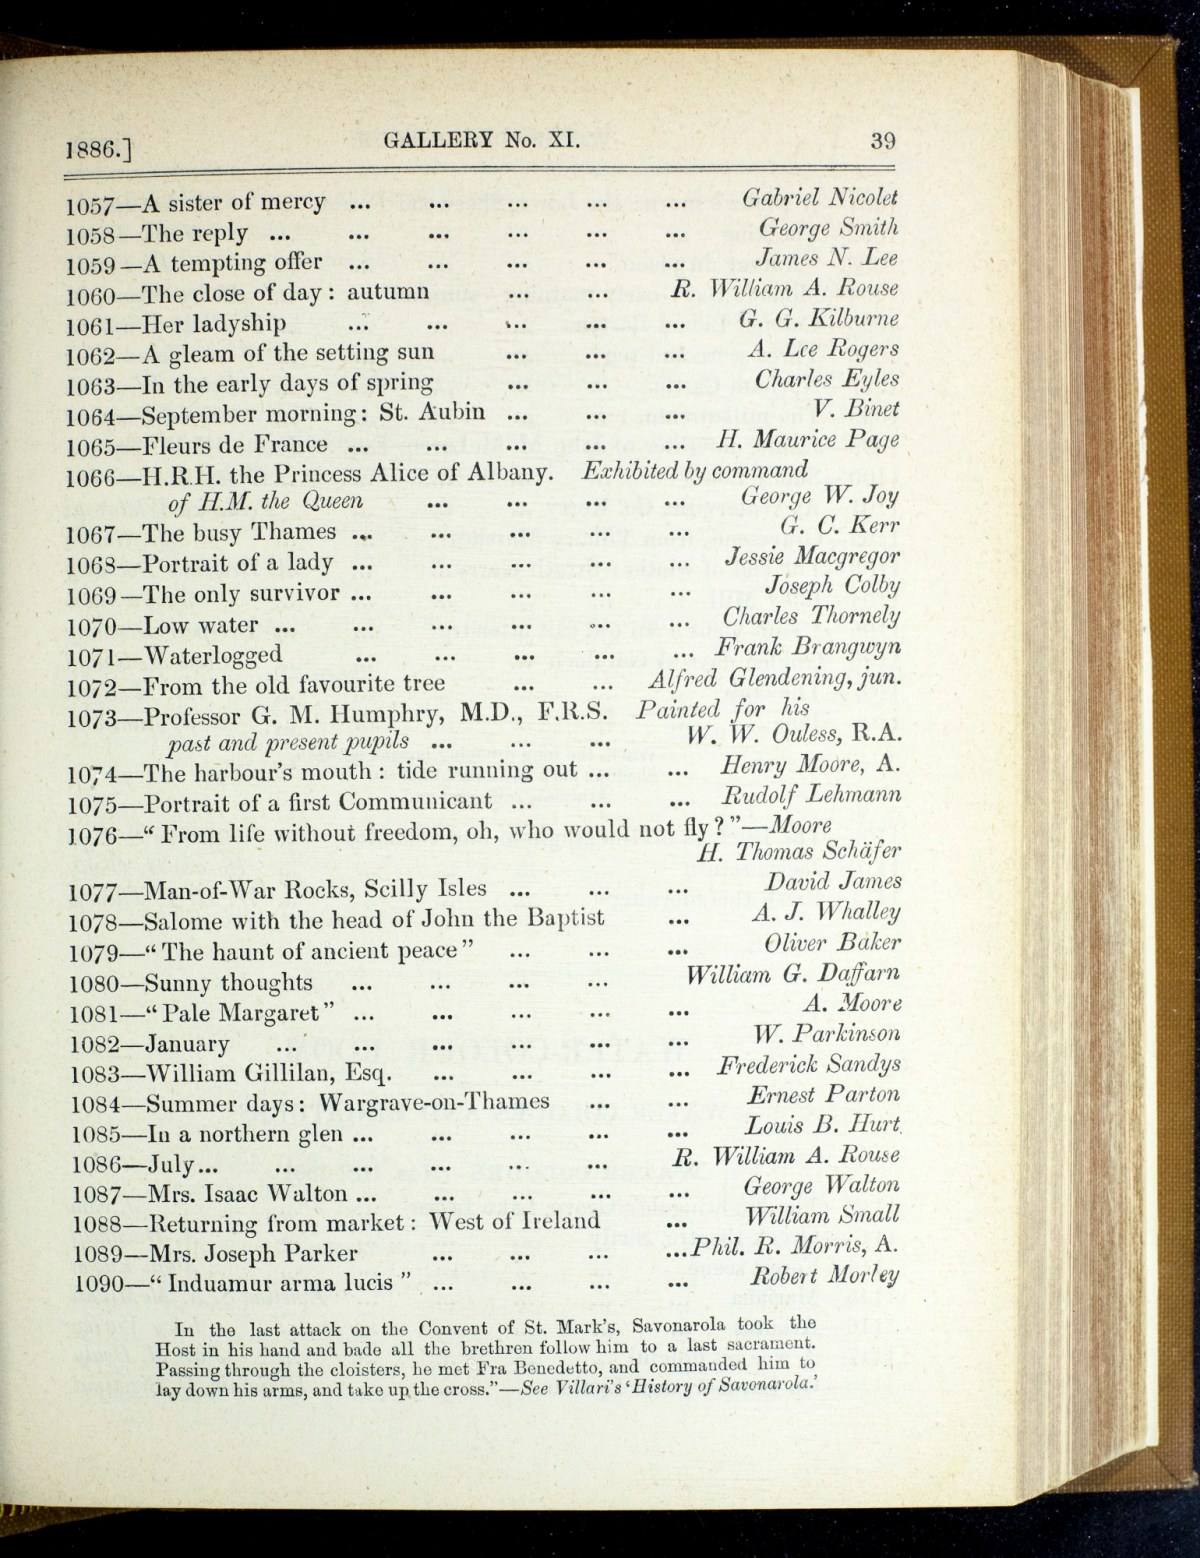 1886.] GALLERY No. XI. 39
1057—A sister of mercy ... ... ... ... ... Gabriel Nicolet
1058—The reply ... ... ... ... ... ... George Smith
1059—A tempting offer ... ... ... ... ... James N. Lee
1060—The close of day : autumn ... ... R. William A. Rouse
1061—Her ladyship ... ... ... ... ... G. G. Kilburne
1062—A gleam of the setting sun ... ... ... A. Lee Rogers
1063—In the early days of spring ... ... ... Charles Eyles
1064—September morning: St. Aubin ... ... ... V. Binet
1065—Fleurs de France ... ... ... ... ... H. Maurice Page
1066—H.R.H. the Princess Alice of Albany. Exhibited by command
of H.M. the Queen ... ... ... ... George W. Joy
1067—The busy Thames ... ... ... ... ... G. C. Kerr
1068—Portrait of a lady ... ... ... ... ... Jessie Macgregor
1069—The only survivor ... ... ... ... ... Joseph Colby
1070—Low water ... ... ... ... ... ... Charles Thornely
1071—Waterlogged ... ... ... ... ... Frank Brangwyn
1072—From the old favourite tree ... ... Alfred Glendening, jun.
1073—Professor G. M. Humphry, M.D., F.R.S. Painted for his
past and present pupils ... ... ... W. W. Ouless, R.A.
1074—The harbour's mouth : tide running out ... ... Henry Moore, A.
1075—Portrait of a first Communicant ... ... ... Rudolf Lehmann
1076—“ From life without freedom, oh, who would not fly ? ”—Moore
H. Thomas Schäfer
1077—Man-of-War Rocks, Scilly Isles ... ... ... David James
1078—Salome with the head of John the Baptist ... A. J. Whalley
1079—“ The haunt of ancient peace ” ... ... ... Oliver Baker
1080—Sunny thoughts ... ... ... ... William G. Daffarn
1081—“ Pale Margaret ” ... ... ... ... ... A. Moore
1082—January ... ... ... ... ... ... W. Parkinson
1083—William Gillilan, Esq. ... ... ... ... Frederick Sandys
1084—Summer days : Wargrave-on-Thames ... ... Ernest Parton
1085—In a northern glen ... ... ... ... ... Louis B. Hurt
1086—July... ... ... ... ... ... R. William A. Rouse
1087—Mrs. Isaac Walton ... ... ... ... ... George Walton
1088—Returning from market : West of Ireland ... William Small
1089—Mrs. Joseph Parker ... ... ... ...Phil. R. Morris, A.
1090—“ Induamur arma lucis ” ... ... ... ... Robert Morley
In the last attack on the Convent of St. Mark's, Savonarola took the
Host in his hand and bade all the brethren follow him to a last sacrament.
Passing through the cloisters, he met Fra Benedetto, and commanded him to
lay down his arms, and take up the cross.”—See Villari's ‘History of Savonarola.’